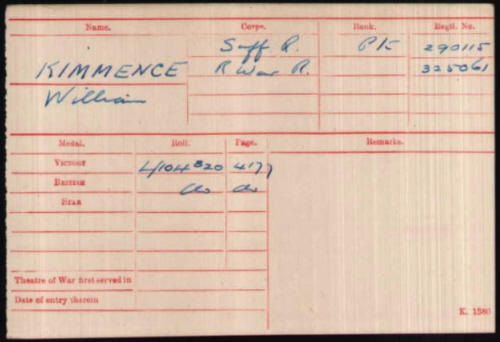 Name. Corps. Rank. Regtl. No.
Suff R. Pte 290115
KIMMENCE R War R. 325061
William
Medal. Roll. Page. Remarks.
Victory L/104B20 4177
British do do
Star
Theatre of War first served in
Date of entry therein
K. 1380